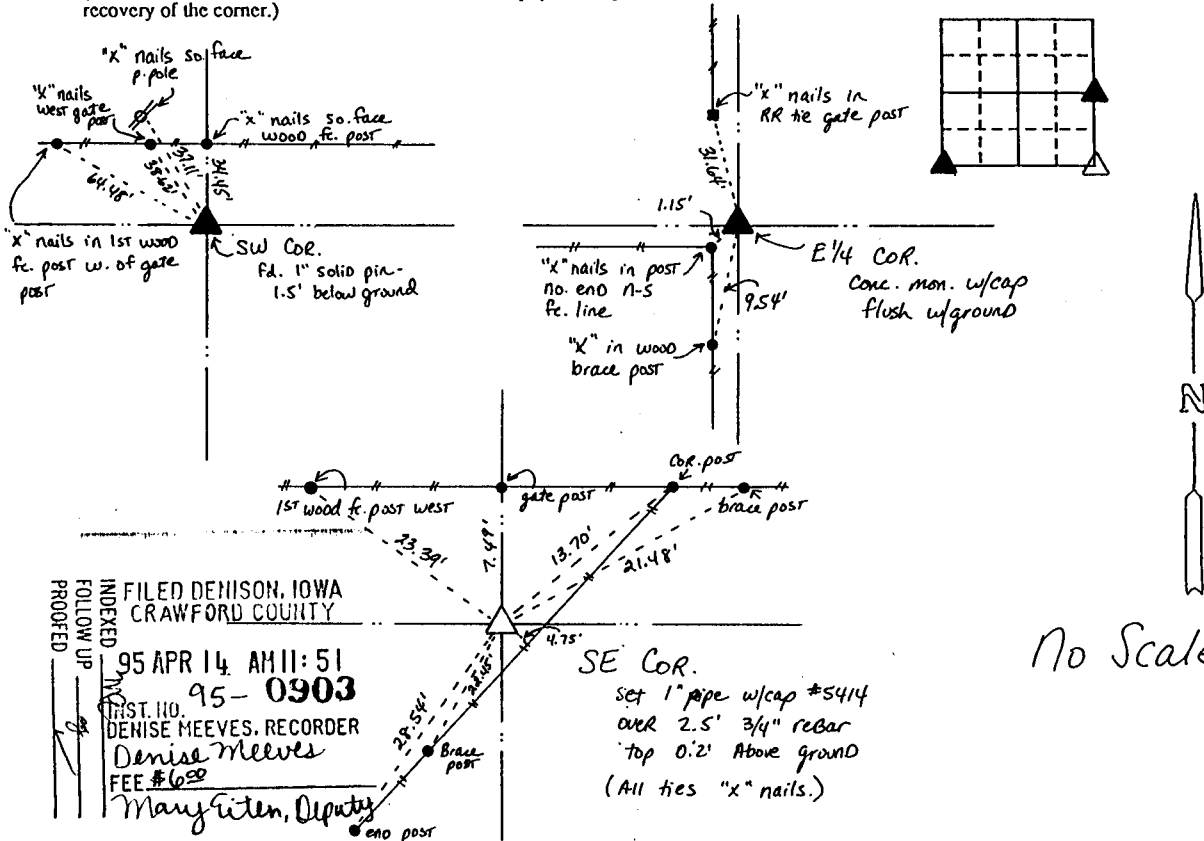 recovery of the corner.)
"X" nails so. face
p. pole
"X" nails
west gate
post
"X" nails so. face
wood fc. post
64.48'
38.62'
37.11'
34.45'
"X" nails in 1ST wood
fc. post w. of gate
post
SW COR.
fd. 1" solid pin-
1.5' below ground
"X" nails in
RR tie gate post
31.64'
1.15'
"X" nails in post
no. end n-s
fc. line
9.54'
"X" in wood
brace post
E 1/4 COR.
Conc. mon. w/cap
flush w/ground
N
No Scale
1ST wood fc. post west
gate post
COR. post
brace post
23.39'
7.49'
13.70'
21.48'
4.75'
28.54'
Brace
post
end post
SE COR.
Set 1" pipe w/cap #5414
over 2.5' 3/4" rebar
top 0.2' Above ground
(All ties "x" nails.)
INDEXED
FOLLOW UP
PROOFED
FILED DENISON, IOWA
CRAWFORD COUNTY
95 APR 14 AM 11:51
INST. NO. 95- 0903
DENISE MEEVES, RECORDER
Denise Meeves
FEE $6.00
Mary Eiten, Deputy